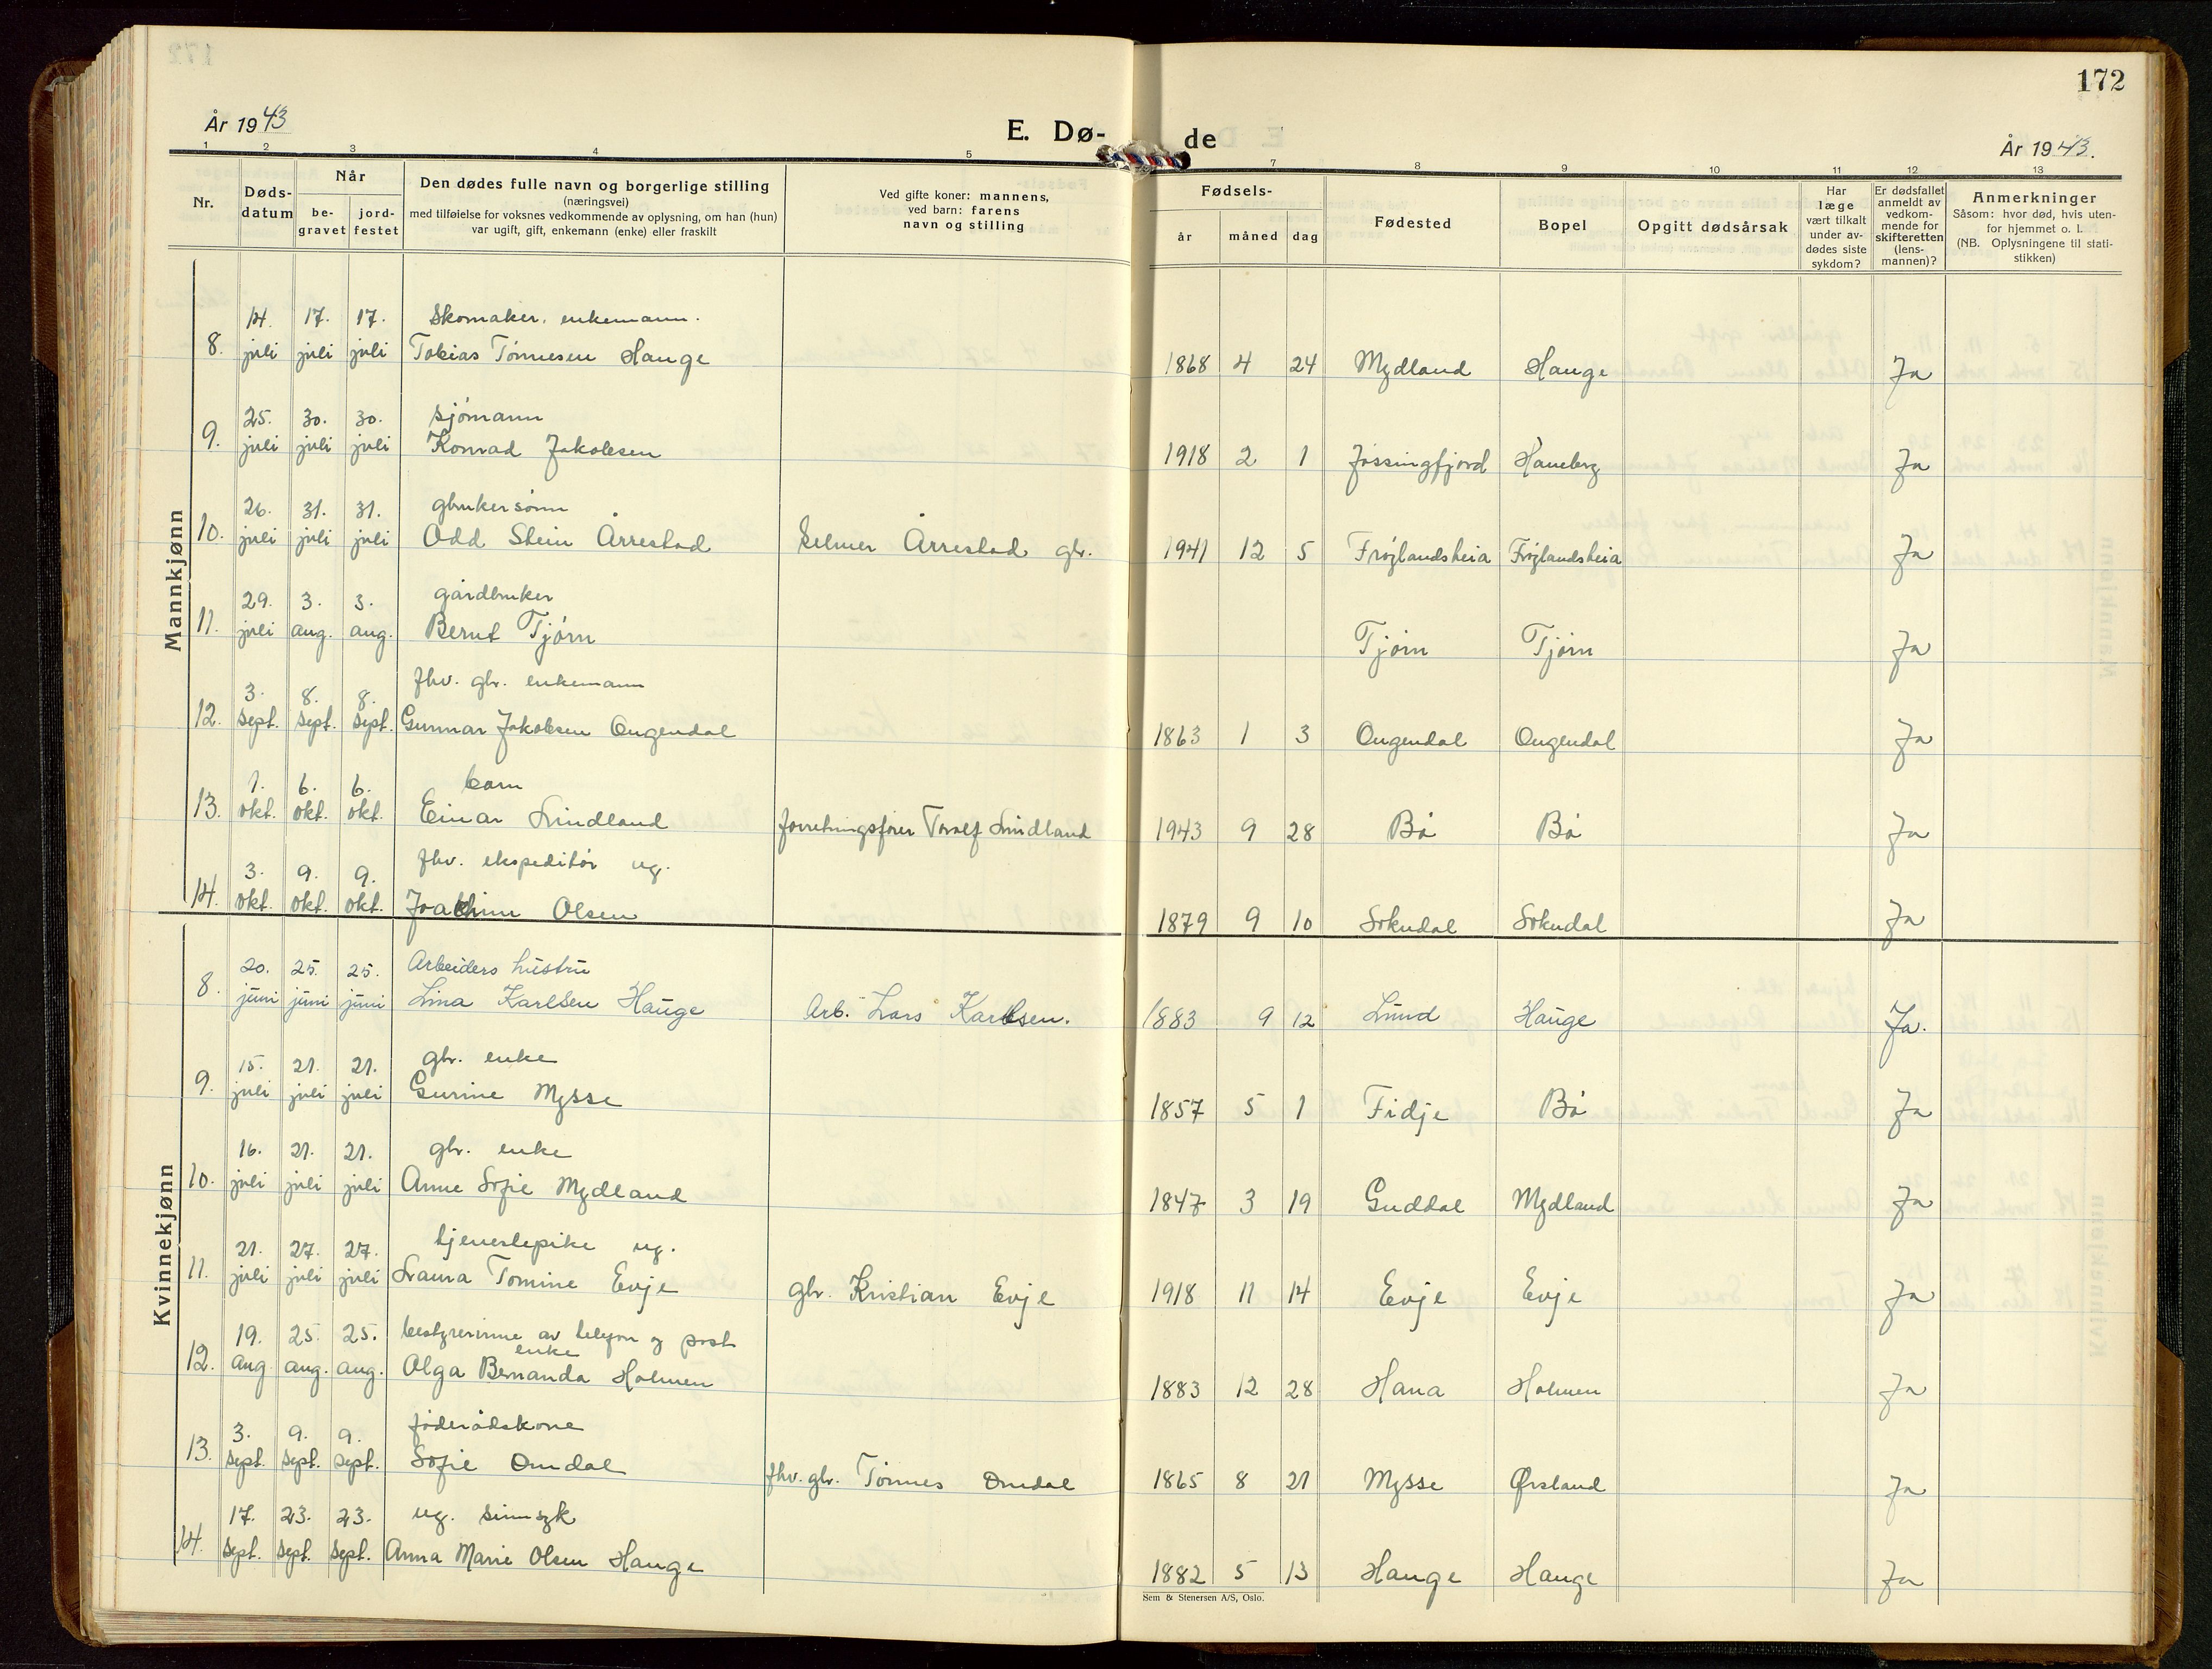 172
År 1943
E. Dø-
de
År 1943.
1 2 3 4 5 7 8 9 10 11 12 13
Nr.
Døds-
datum
Når
be-
gravet
jord-
festet
Den dødes fulle navn og borgerlige stilling
(næringsvei)
med tilføielse for voksnes vedkommende av oplysning, om han (hun)
var ugift, gift, enkemann (enke) eller fraskilt
Ved gifte koner: mannens,
ved barn: farens
navn og stilling
Fødsels-
år
måned
dag
Fødested
Bopel
Opgitt dødsårsak
Har
læge
vært tilkalt
under av-
dødes siste
sykdom?
Er dødsfallet
anmeldt av
vedkom-
mende for
skifteretten
(lens-
mannen)?
Anmerkninger
Såsom: hvor død, hvis uten-
for hjemmet o. l.
(NB. Oplysningene til stati-
stikken)
Mannkjønn
14. 17. 17. Skomaker, enkemann.
8. juli juli juli Tobias Tønnesen Hauge 1868 4 24 Mydland Hauge Ja
25. 30. 30. sjømann
9. juli juli juli Konrad Jakobsen 1918 2 1 Jøssingfjord Haneberg Ja
26. 31. 31. gbrukersønn
10. juli juli juli Odd Stein Årrestad Selmer Årrestad gbr. 1941 12 5 Frøylandsheia Frøylandsheia Ja
29. 3. 3. gårdbruker
11. juli aug. aug. Bernt Tjørn Tjørn Tjørn Ja
3. 8. 8. fhv. gbr. enkemann
12. sept. sept. sept. Gunnar Jakobsen Ougendal 1863 1 3 Ougendal Ougendal Ja
1. 6. 6. barn
13. okt. okt. okt. Einar Lindland forretningsfører Toralf Lindland 1943 9 28 Bø Bø Ja
3. 9. 9. fhv. ekspeditør ug.
14. okt. okt. okt. Joachim Olsen 1879 9 10 Sokndal Sokndal Ja
Kvinnekjønn
20. 25. 25. Arbeiders hustru
8. juni juni juni Lina Karlsen Hauge Arb. Lars Karlsen. 1883 9 12 Lund Hauge Ja.
15. 21. 21. gbr. enke
9. juli juli juli Gurine Mysse 1857 5 1 Fidje Bø Ja
16. 21. 21. gbr. enke
10. juli juli juli Anne Sofie Mydland 1847 3 19 Guddal Mydland Ja
21. 27. 27. tjenestepike ug.
11. juli juli juli Laura Tomine Evje gbr. Kristian Evje 1918 11 14 Evje Evje Ja
19. 25. 25. bestyrerinne av telefon og post
enke
12. Aug aug. aug. Olga Bernanda Holmen 1883 12 28 Hana Holmen Ja
3. 9. 9. føderådskone
13. sept. sept. sept. Sofie Omdal fhv. gbr. Tønnes Omdal 1865 8 21 Mysse Ørsland Ja
17. 23. 23. ug. sinnsyk
14. sept. sept. sept. Anna Marie Olsen Hauge 1882 5 13 Hauge Hauge Ja
Sem & Stenersen A/S, Oslo.